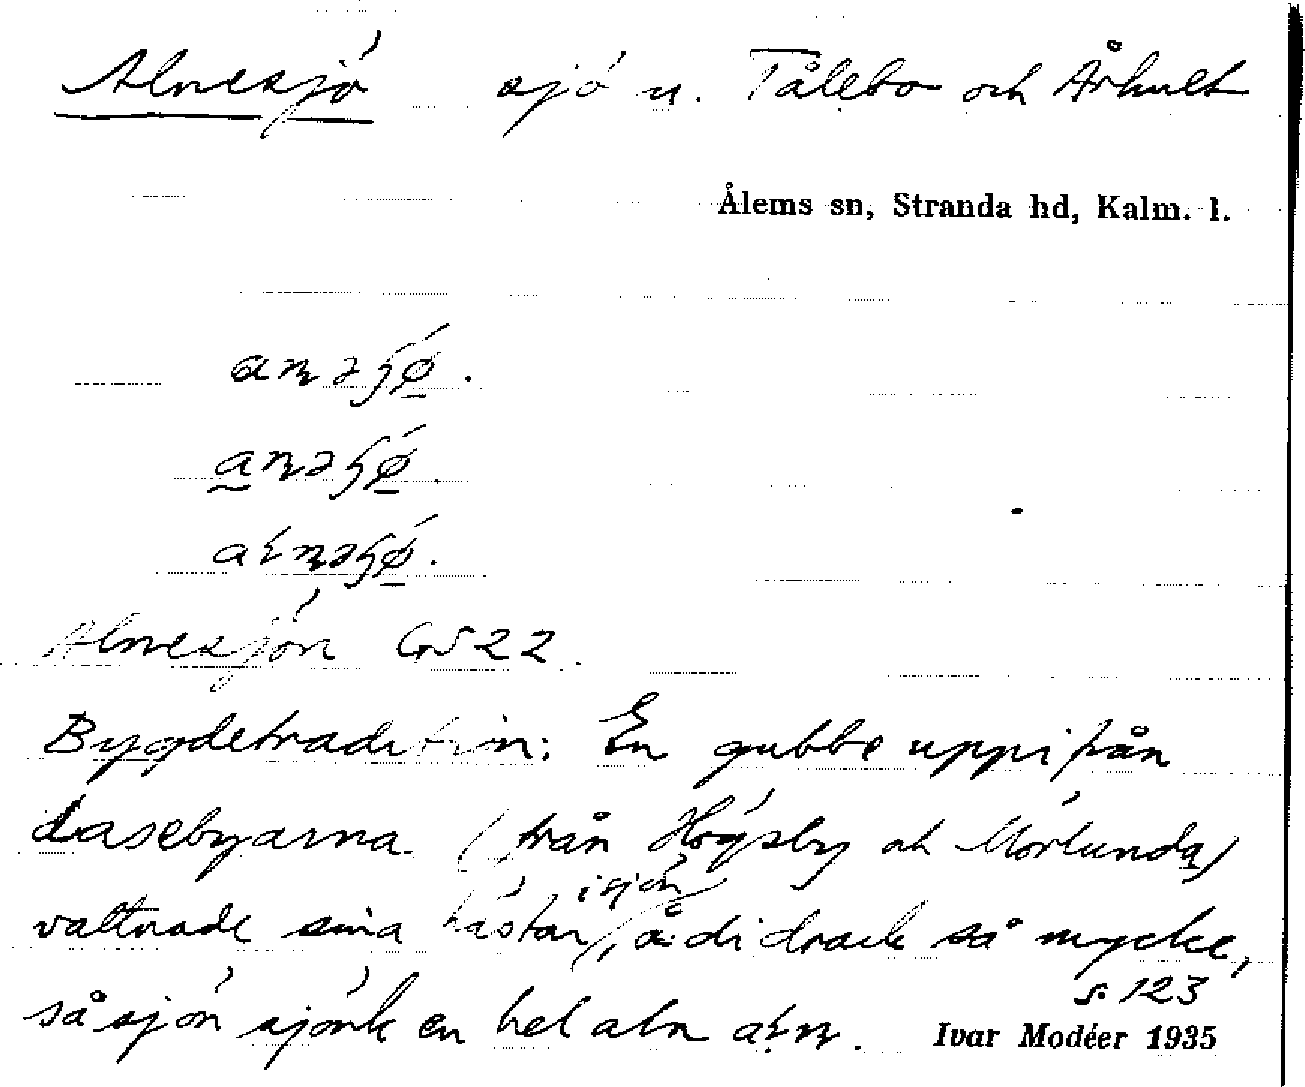 Alnesjö sjö u. Tålebo och Århult
Ålems sn, Stranda hd, Kalm. l.
Alnesjön GS 22.
Bygdetradition: En gubbe uppifrån
Lasebyarna (från Högsby och Mörlunda)
vattnade sina hästar i sjön, å di drack så mycke,
så sjön sjönk en hel aln
s. 123
Ivar Modéer 1935